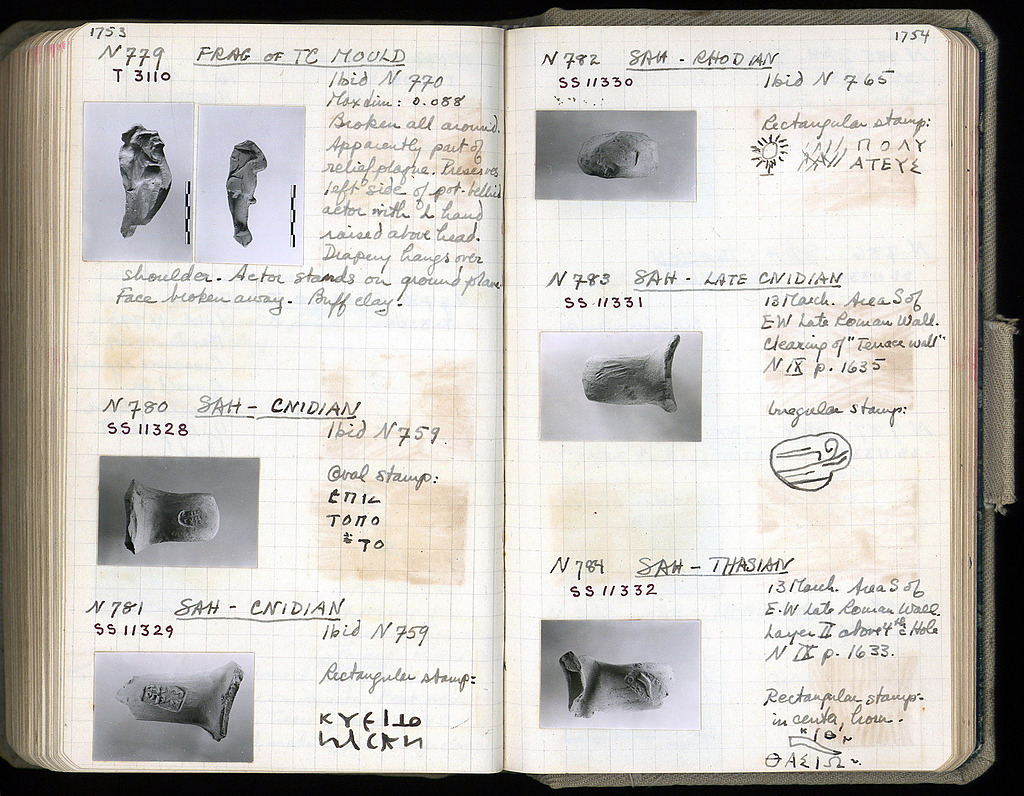 1753
N 779 FRAG OF TC MOULD
T 3110
Ibid N 770
Max dim: 0.088
Broken all around.
Apparently part of
relief plaque. Preserves
left side of pot-bellied
actor with L hand
raised above head.
Drapery hangs over
shoulder. Actor stands on ground plane
Face broken away. Buff clay.
N 780 SAH - CNIDIAN
SS 11328
Ibid N 759.
Oval stamp:
ΕΠΙ
ΤΟΠΟ
ΤΟ
N 781 SAH - CNIDIAN
SS 11329
Ibid N 759
Rectangular stamp:
1754
N 782 SAH - RHODIAN
SS 11330
Ibid N 765
Rectangular stamp:
ΠΟΛΥ
ΑΤΕΥΣ
N 783 SAH - LATE CNIDIAN
SS 11331
13 March. Area S of
EW Late Roman Wall.
Clearing of "Terrace wall"
N IX p. 1635
Irregular stamp:
N 784 SAH - THASIAN
SS 11332
13 March. Area S of
E-W Late Roman Wall
Layer II above 4th c Hole
N IX p. 1633.
Rectangular stamp-
in center, horn.
ΘΑΣΙΩ